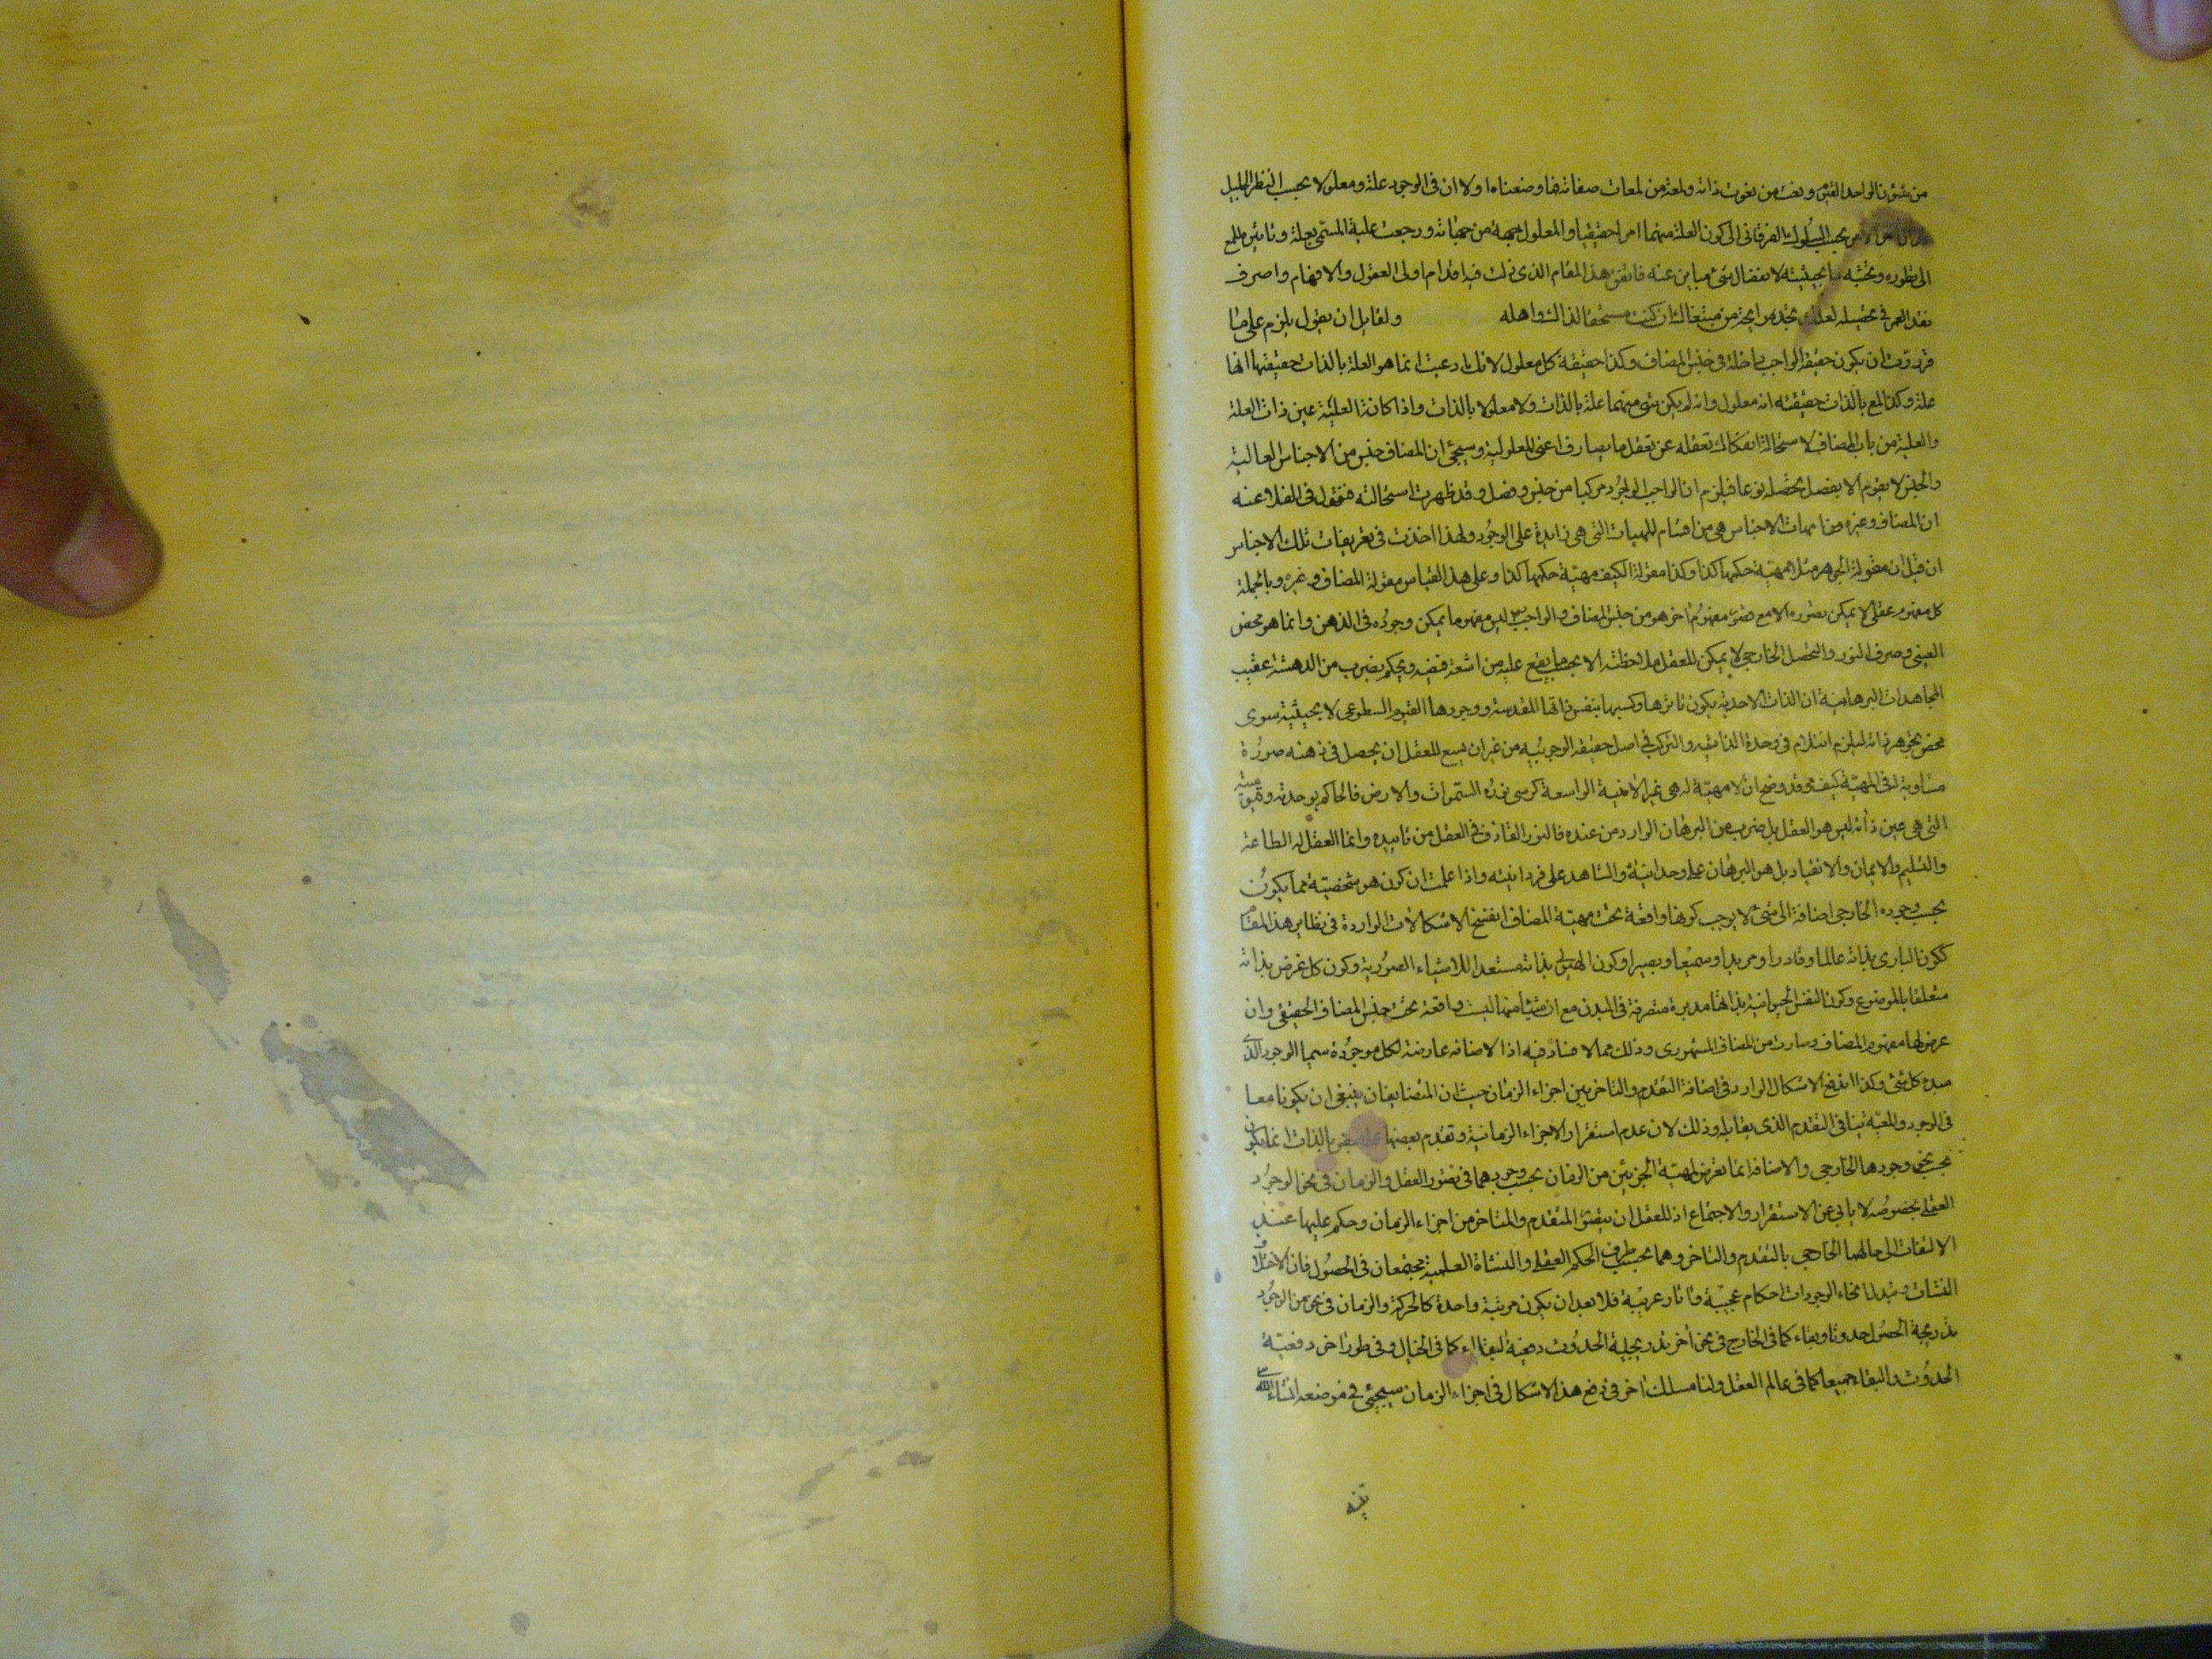 من شئون الواحد القيوم ونعت من نعوت ذاته ولمعة من لمعات صفاته فما وضعناه اولا ان فى الوجود علة ومعلولا بحسب النظر الجليل
بحسب السلوك العرفانى الى كون العلة منهما امرا حقيقيا والمعلول جهة من جهاته ورجعت علية المسمى بعلة وتاثيره للمع
الى تطوره وتحيثه بحيثية لا انفصال شئ مباين عنه فاتقن هذا المقام الذى زلت فيه اقدام اولى العقول والافهام واصرف
نقد العمر فى تحصيله لعلك تجد رايحة من مبتغاك ان كنت مستحقا لذلك واهله ولقايل ان يقول يلزم على ما
قررت ان يكون حقيقة الواجب داخلة فى جنس المضاف وكذا حقيقة كل معلول لانك ادعيت انما هو العلة بالذات حقيقتها انها
علة وكذا المع بالذات حقيقته انه معلول وانه لم يكن شئ منهما علة بالذات ولا معلولا بالذات واذا كانت العلية عين ذات العلة
والعلية من باب المضاف لاستحالة انفكاك تعقله عن تعقل ما يضايفه اعنى المعلولية وسيجئ ان المضاف جنس من الاجناس العالية
والجنس لا يقوم الا بفصل يحصله نوعا فيلزم ان الواجب الوجود مركبا من جنس وفصل وقد ظهرت استحالته فنقول فى الفك عنه
ان المضاف وغيره من امهات الاجناس هى من اقسام المهيات التى هى زايدة على الوجود ولهذا اخذت فى تعريفات تلك الاجناس
ان قيل ان مقولة الجوهر مثلا مهية حكمها كذا وكذا مقولة الكيف مهية حكمها كذا وعلى هذا القياس مقولة المضاف وغيره وبالجملة
كل مفهوم عقلى لا يمكن تصوره الا مع تصور مفهوم اخر هو من جنس المضاف والواجب تع ليس مفهوما يمكن وجوده فى الذهن وانما هو محض
العينى وصرف النور والتحصل الخارجى لا يمكن للعقل ملاحظته الا بحسب ما يقع عليه من اشعة فيضه ويحكم بضرب من الدهشة عقيب
المجاهدات البرهانية ان الذات الاحدية يكون تاثيرها وكسبها بنفس ذاتها المقدسة ووجودها القيوم السطوعى لا بحيثية سوى
محض تجوهر ذاته ليلزم انثلام فى وحدة الذاتية والتركب فى اصل حقيقة الوجوبية من غير ان يسع للعقل ان يحصل فى ذهنه صورة
مساوية له فى المهية كيف وقد وضح ان لا مهية له هى غير الانية الواسعة كرسى نوره السموات والارض فالحاكم بوحدته وقيوميته
التى هى عين ذاته ليس هو العقل بل ضرب من البرهان الوارد من عنده فالنور القاذف فى العقل من تاييده وانما العقل له الطاعة
والتسليم والايمان والانقياد بل هو البرهان على وحدانيته والشاهد على فردانيته واذا علمت ان كون هو شخصيته مما يكون
بحسب وجوده الخارجى اضافة الى شئ لا يوجب كونها واقعة تحت مهية المضاف انفسخ الاشكالات الواردة فى نظاير هذا المقام
ككون البارى بذاته عالما وقادرا ومريدا وسميعا وبصيرا وكون الهيولى بذاته مستعد اللاشياء الصورية وكون كل عرض بذاته
متعلقا بالموضوع وكون النفس الحيوانية بذاتها مدبرة متصرفة فى البدن مع ان شيئا منها ليست واقعة تحت جنس المضاف الحقيقى وان
عرض لها مفهوم المضاف وصارت من المضاف المشهورى وذلك مما لا فساد فيه اذا الاضافة عارضة لكل موجودة سيما الوجود الذى
مبدء كل شئ وكذا اندفع الاشكال الوارد فى اضافة التقدم والتاخر بين اجزاء الزمان حيث ان المتضايفان ينبغى ان يكونا معا
فى الوجود والمعية ينافى التقدم الذى يقابله وذلك لان عدم استقرار الاجزاء الزمانية وتقدم بعضها على بعض بالذات انما يكون
بحسب نحو وجودها الخارجى والاضافة انما تعرض لمهية الجزئين من الزمان بحسب وجودهما فى تصور العقل والزمان فى نحو الوجود
العقلى بخصوصه لا يابى عن الاستقرار والاجتماع اذ للعقل ان يتصور المتقدم والمتاخر من اجزاء الزمان وحكم عليها عند
الالتفات الى حالهما الخارجى بالتقدم والتاخر وهما بحسب ظرف الحكم العقلى والنشاة العلمية مجتمعان فى الحصول فان لاختلاف
النشات وتبدل انحاء الوجودات احكام عجيبة واثار غريبة فلا بعد ان يكون مرتبة واحدة كالحركة والزمان فى نحو من الوجود
تدريجة الحصول حدوثا وبقاء كما فى الخارج فى نحو اخر تدريجية الحدوث دفعية البقاء كما فى الخيال وفى طور اخر دفعية
الحدوث والبقاء جميعا كما فى عالم العقل ولنا مسلك اخر فى دفع هذا الاشكال فى اجزاء الزمان سيجئ فى موضعه انشاء الله